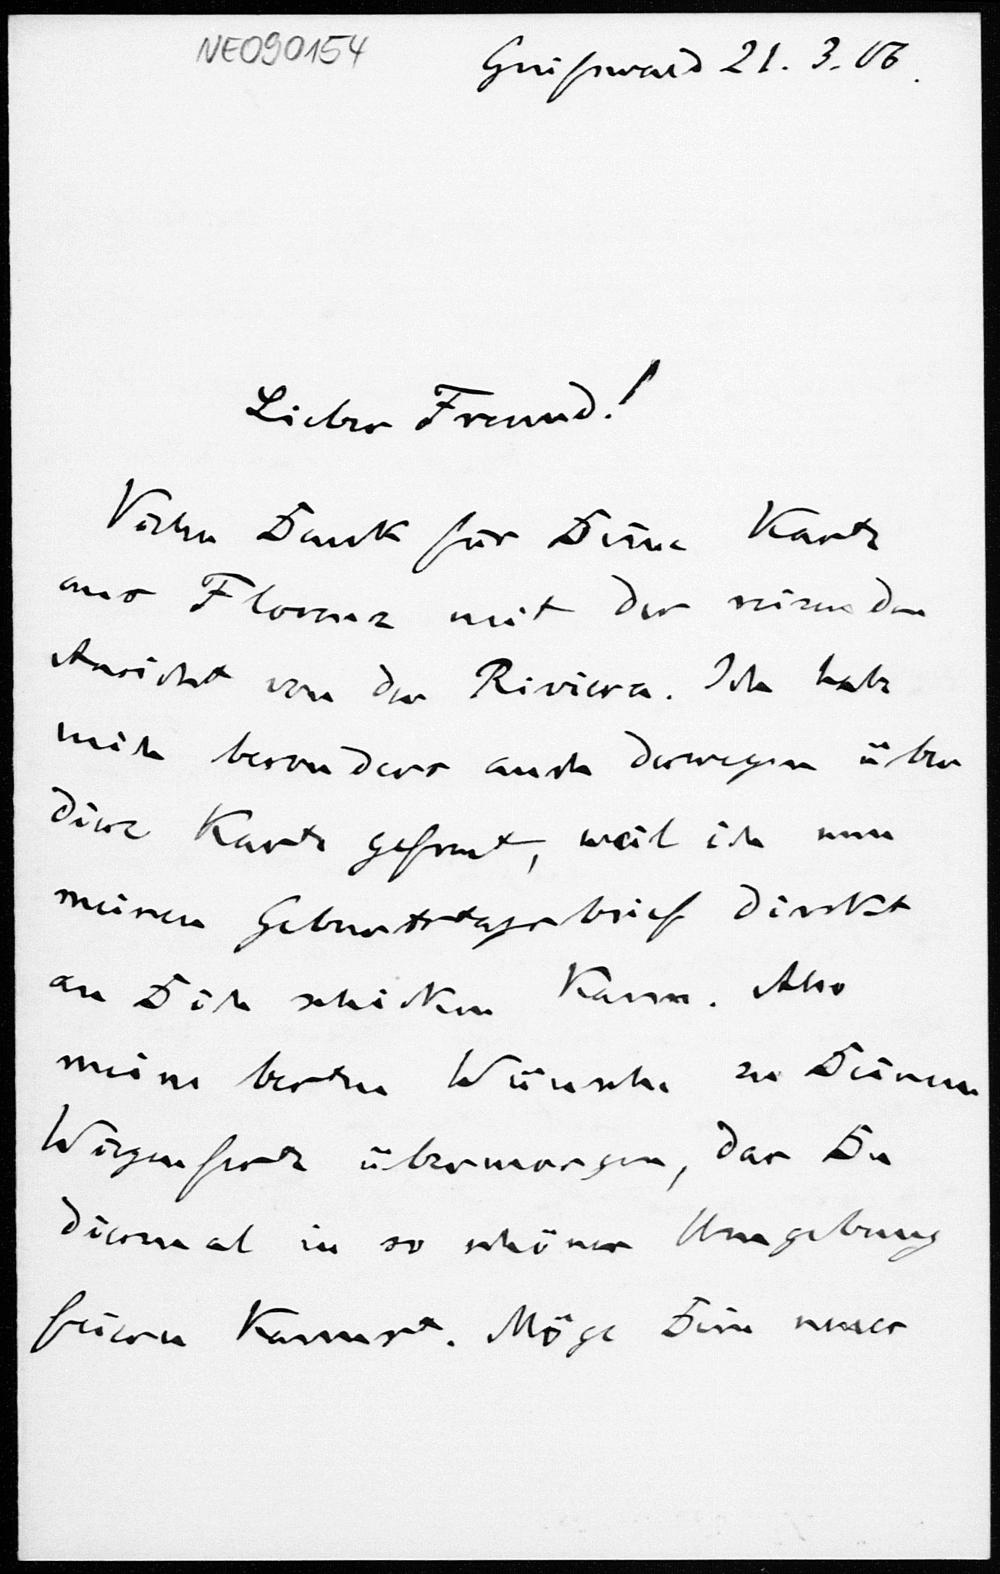 NE090154
Greifswald 21. 3. 06.
Lieber Freund!
Vielen Dank für Deine Karte
aus Florenz mit der reizenden
Ansicht von der Riviera. Ich habe
mich besonders auch deswegen über
diese Karte gefreut, weil ich nun
meinen Geburtstagsbrief direkt
an Dich schicken kann. Also
meine besten Wünsche zu Deinem
Wiegenfeste übermorgen, das Du
diesmal in so schöner Umgebung
feiern kannst. Möge Dein neues